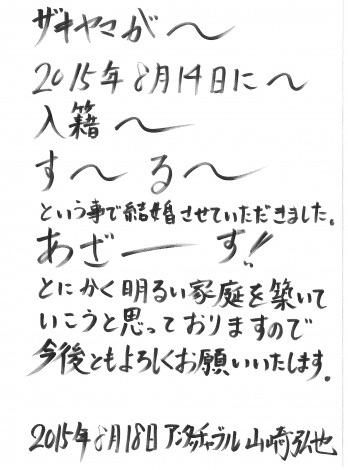 ザキヤマが〜
2015年8月14日に〜
入籍〜
す〜る〜
という事で結婚させていただきました。
あざーーす!!
とにかく明るい家庭を築いて
いこうと思っておりますので
今後ともよろしくお願いいたします。
2015年8月18日アンタッチャブル山崎弘也